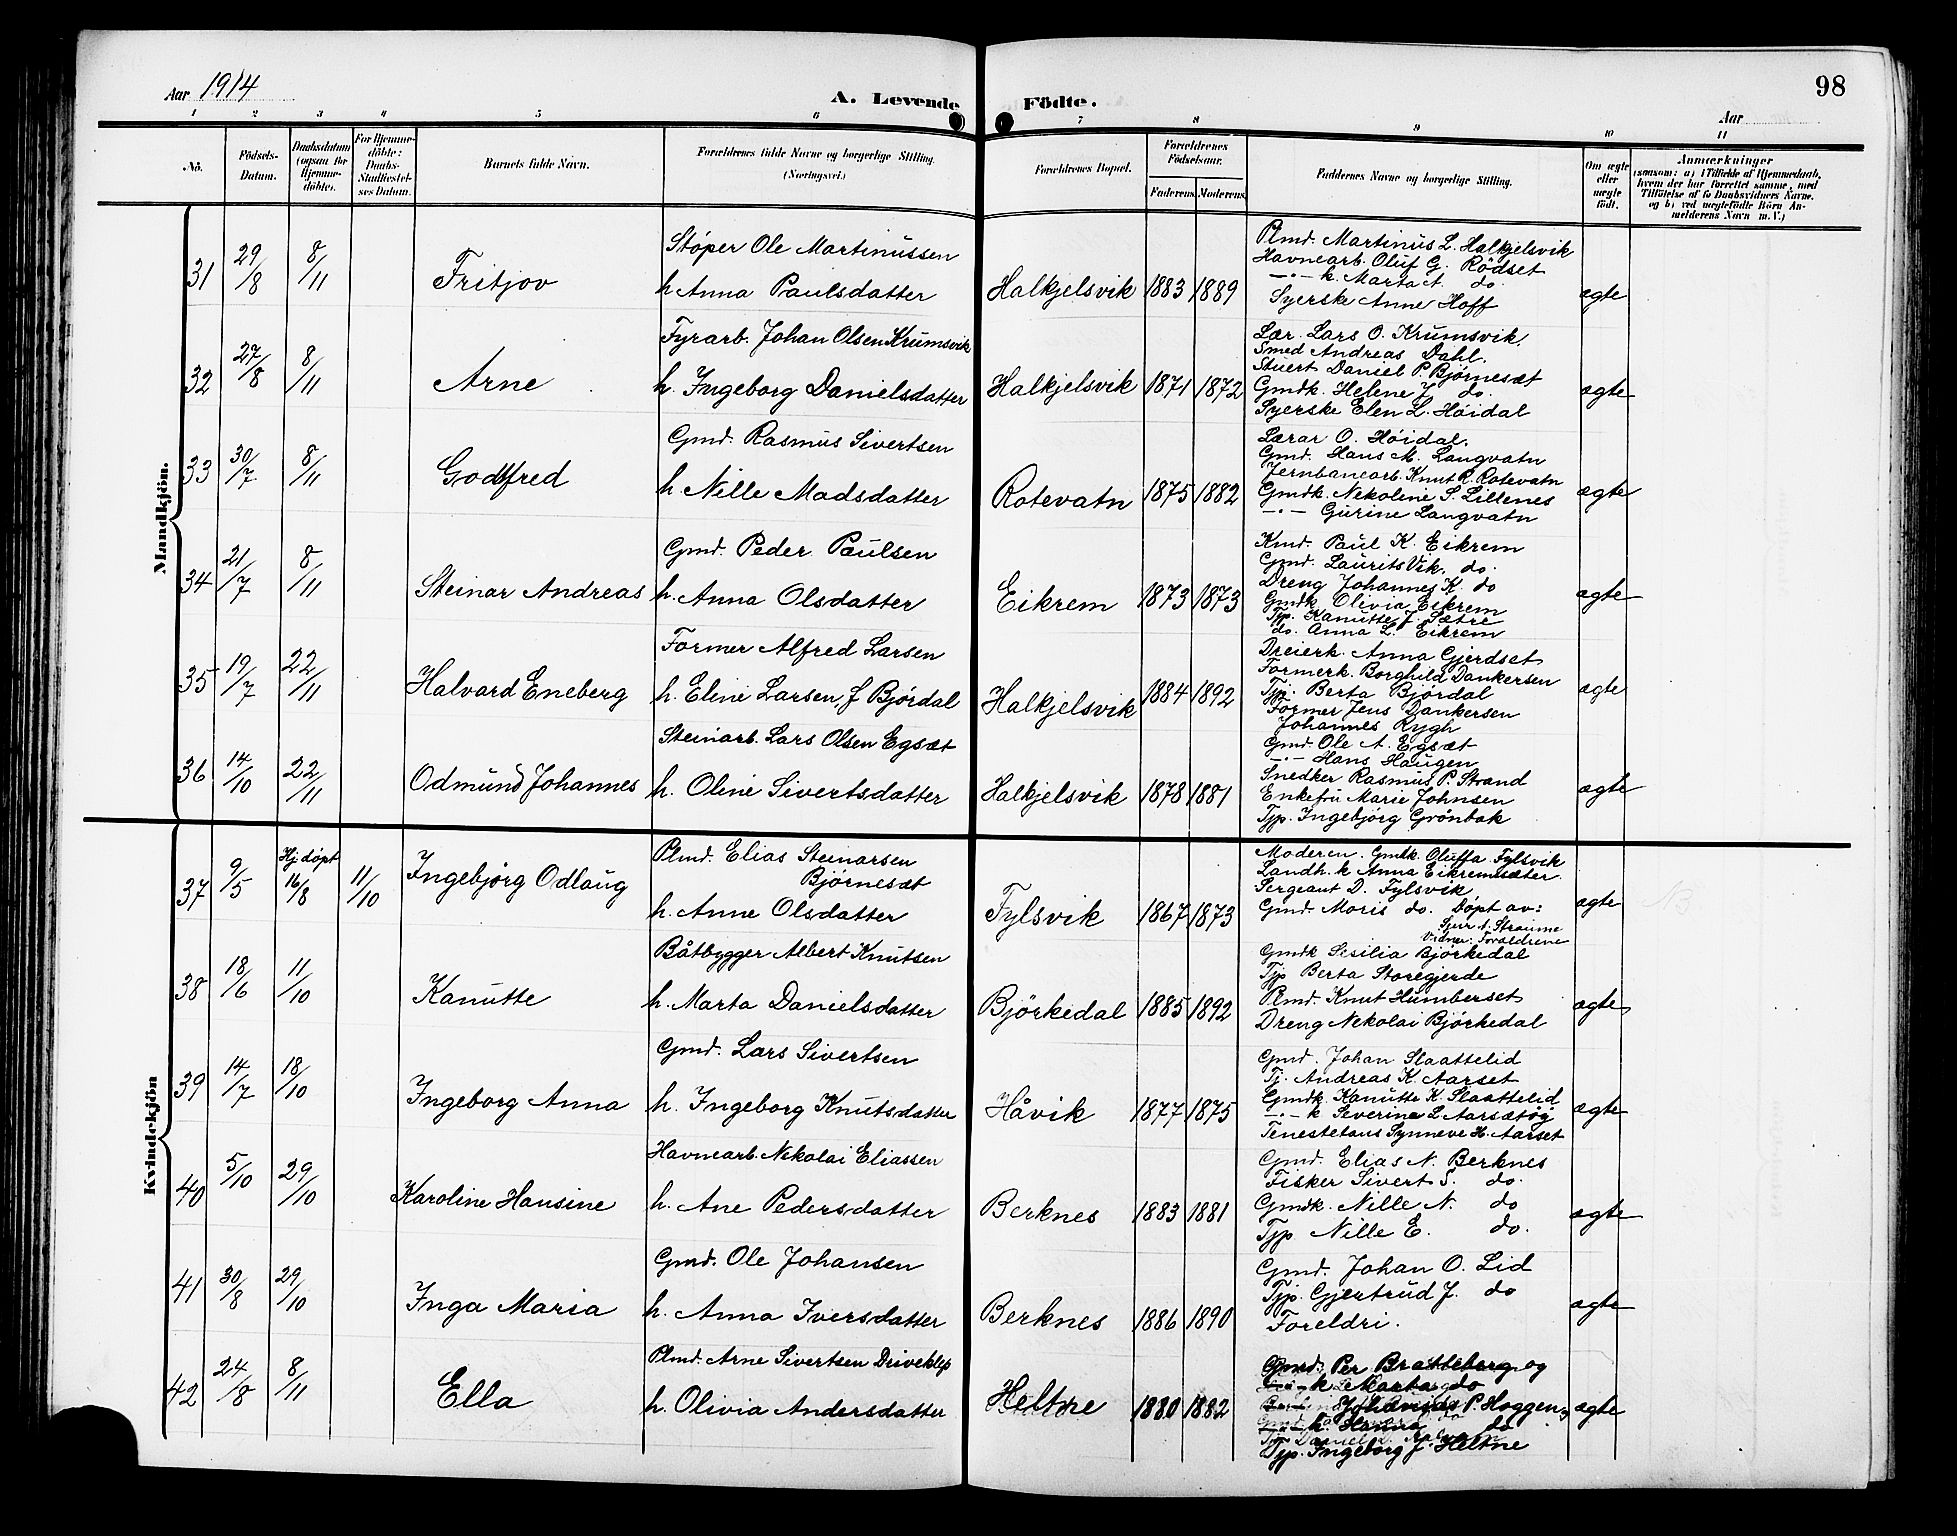 98
Aar 1914
A. Levende Födte.
Aar
1 2 3 4 5 6 7 8 9 10 11
No.
Födsels-Datum.
Daabsdatum (ogsaa for Hjemme-döbte).
For Hjemme-döbte: Daabs-Stadfæstel-ses Datum.
Barnets fulde Navn.
Forældrenes fulde Navne og borgerlige Stilling. (Næringsvei.)
Forældrenes Bopæl.
Forældrenes Födselsaar.
Faderens Moderens
Faddernes Navne og borgerlige Stilling.
Om ægte eller uægte födt.
Anmærkninger
(saasom: a) i Tilfælde af Hjemmedaab,
hvem der har forrettet samme, med
Tilföielse af to Daabsvidners Navne,
og b) ved uægtefödte Börn An-
melderens Navn m. V.)
Mandkjön.
31 29/8 8/11 Fritjov
Støper Ole Martinussen
h. Anna Paulsdatter
Halkjelsvik 1883 1889
Plmd. Martinus L. Halkjelsvik
Havnearb. Oluf G. Rödset
-"- k. Marta A. do.
Syerske Anne Hoff
ægte
32 27/8 8/11 Arne
Fyrarb. Johan Olsen Krumsvik
h. Ingeborg Danielsdatter
Halkjelsvik 1871 1872
Lær. Lars O. Krumsvik.
Smed Andreas Dahl.
Stuert Daniel P. Bjørneset
Gmdk. Helene J. do.
Syerske Elen L. Høidal
ægte
33 30/7 8/11 Godtfred
Gmd. Rasmus Sivertsen
h. Nille Madsdatter
Rotevatn 1875 1882
Lærar O. Høidal.
Gmd. Hans M. Langvatn
Jernbanearb. Knut R. Rotevatn
Gmdk. Nekoline S. Lillenes
-"- Gurine Langvatn
ægte
34 21/7 8/11 Steinar Andreas
Gmd. Peder Paulsen
h. Anna Olsdatter
Eikrem 1873 1873
Kmd. Paul K. Eikrem
Gmd. Laurits Vik. do.
Dreng Johannes K. do
Gmdk Olivia Eikrem
Tjp. Kanutte J. Sætre
do. Anna L. Eikrem
ægte
35 19/7 22/11 Halvard Eneberg
Former Alfred Larsen
h. Eline Larsen, f Bjørdal
Halkjelsvik 1884 1892
Dreierk. Anna Gjerdset
Formerk. Borghild Dankersen
Tjp. Berta Bjørdal
Former Jens Dankersen
Johannes Rygh
ægte
36 14/10 22/11 Odmund Johannes
Steinarb. Lars Olsen Egsæt
h. Oline Sivertsdatter
Halkjelsvik 1878 1881
Gmd. Ole A. Egsæt
-"- Hans Haugen
Snedker Rasmus P. Strand
Enkefru Marie Johnsen
Tjp. Ingebjørg Grönbak
ægte
Kvindekjön
37 9/5 Hjdøpt 16/8 11/10 Ingebjørg Odlaug
Plmd. Elias Steinarsen
Bjørnesæt
h. Anne Olsdatter
Fylsvik 1867 1873
Moderen. Gmdk. Oluffa Fylsvik
Landh. k Anna Eikremsæter.
Sergeant D. Fylsvik
Gmd. Moris do. Døpt av:
Straume
Vidner: Foraldrene
ægte NB
38 18/6 11/10 Kanutte
Båtbygger Albert Knutsen
h. Marta Danielsdatter
Björkedal 1885 1892
Gmdk Sesilia Bjørkedal
Tjp Berta Storegjerde
Plmd. Knut Humberset
Dreng Nekolai Bjørkedal
ægte
39 14/7 18/10 Ingeborg Anna
Gmd. Lars Sivertsen
h. Ingeborg Knutsdatter
Håvik 1877 1875
Gmd. Johan Slaattelid
Tj. Andreas K. Aarset
Gmdk. Kanutte K. Slaattelid
-"- k Severine L Aarsætøg
Tenestetaus Synneve H. Aarset
ægte
40 5/10 29/10 Karoline Hansine
Havnearb. Nekolai Eliassen
h. Ane Pedersdatter
Berknes 1883 1881
Gmd. Elias N. Berknes
Fisker Sivert S. do.
Gmdk. Nille N. do
Tjp Nille E. do.
ægte
41 30/8 29/10 Inga Maria
Gmd. Ole Johansen
h. Anna Iversdatter
Berknes 1886 1890
Gmd. Johan O. Lid
Tjp. Gjertrud J. do
Foreldri.
ægte
42 24/8 8/11 Ella
Plmd. Arne Sivertsen Driveklep
h. Olivia Andersdatter
Heltne 1880 1882
Gmd. Per Bratteberg og
k Marta do
P. Hoggen
k. Hanna do
Tjp. Ingeborg J. Heltne
ægte